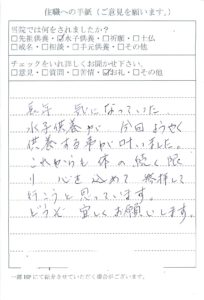 住職への手紙（ご意見を願います。）
当院では何をされましたか？
・□先祖供養・☑水子供養・□祈願・□十仏
・□戒名・□相談・□手元供養・□その他
チェックをいれ詳しくお聞かせ下さい。
□意見・□質問・□苦情・☑お礼・□その他
長年 気になっていた
水子供養が 今回 ようやく
供養する事が叶いました。
これからも 体の続く限
り 心を込めて 参拝して
行こうと思っています。
どうぞ 宜しくお願いします。
一部HPにて紹介させていただく場合がございます。